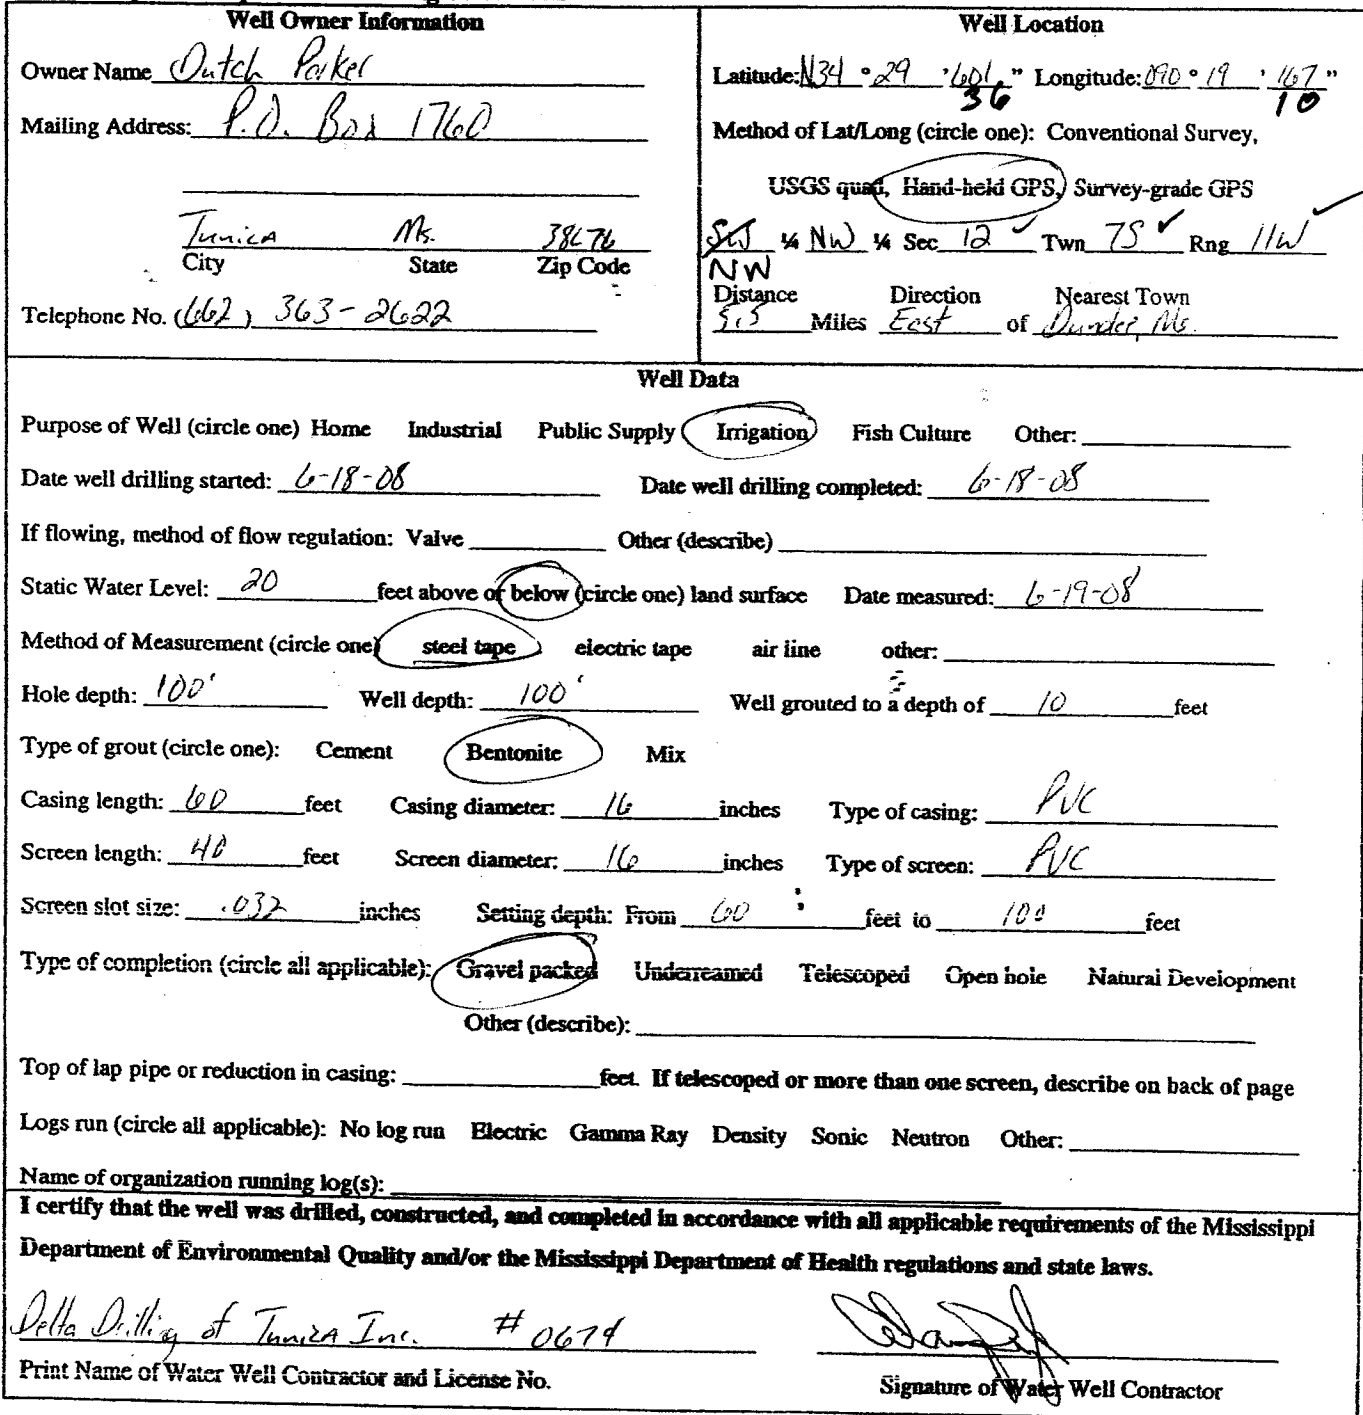 Well Owner Information
Owner Name Dutch Parker
Mailing Address: P.O. Box 1760
Tunica Ms. 38676
City State Zip Code
Telephone No. (662) 363-2622
Well Location
Latitude: N34 ° 29 '601 " Longitude: 090 ° 19 ' 167 "
36 10
Method of Lat/Long (circle one): Conventional Survey,
USGS quad, Hand-held GPS, Survey-grade GPS
SW ¼ NW ¼ Sec 12 ✓ Twn 7S ✓ Rng 11W ✓
NW
Distance Direction Nearest Town
5.5 Miles East of Dundee, Ms.
Well Data
Purpose of Well (circle one) Home Industrial Public Supply Irrigation Fish Culture Other:
Date well drilling started: 6-18-08 Date well drilling completed: 6-18-08
If flowing, method of flow regulation: Valve Other (describe)
Static Water Level: 20 feet above or below (circle one) land surface Date measured: 6-19-08
Method of Measurement (circle one) steel tape electric tape air line other:
Hole depth: 100' Well depth: 100' Well grouted to a depth of 10 feet
Type of grout (circle one): Cement Bentonite Mix
Casing length: 60 feet Casing diameter: 16 inches Type of casing: PVC
Screen length: 40 feet Screen diameter: 16 inches Type of screen: PVC
Screen slot size: .032 inches Setting depth: From 60 feet to 100 feet
Type of completion (circle all applicable): Gravel packed Underreamed Telescoped Open hole Natural Development
Other (describe):
Top of lap pipe or reduction in casing: feet. If telescoped or more than one screen, describe on back of page
Logs run (circle all applicable): No log run Electric Gamma Ray Density Sonic Neutron Other:
Name of organization running log(s):
I certify that the well was drilled, constructed, and completed in accordance with all applicable requirements of the Mississippi
Department of Environmental Quality and/or the Mississippi Department of Health regulations and state laws.
Delta Drilling of Tunica Inc. # 0674
Print Name of Water Well Contractor and License No.
Signature of Water Well Contractor